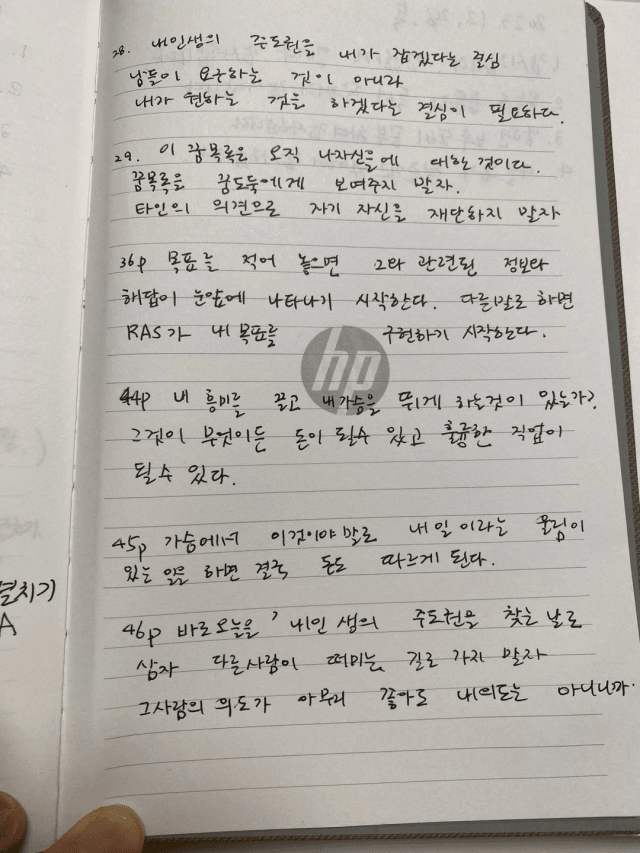 28. 내인생의 주도권을 내가 잡겠다는 결심
남들이 요구하는 것이 아니라
내가 원하는 것을 하겠다는 결심이 필요하다.
29. 이 꿈목록은 오직 나자신들에 대한 것이다.
꿈목록을 꿈도둑에게 보여주지 말자.
타인의 의견으로 자기 자신을 재단하지 말자
36p 목표를 적어 놓으면 그와 관련된 정보와
해답이 눈앞에 나타나기 시작한다. 다른말로 하면
RAS가 내 목표를 구현하기 시작한다.
hp
44p 내 흥미를 끌고 내가슴을 뛰게 하는것이 있는가?
그것이 무엇이든 돈이 될수 있고 훌륭한 직업이
될 수 있다.
45p 가슴에서 이것이야말로 내 일 이라는 울림이
있는 일을 하면 결국 돈도 따르게 된다.
46p 바로오늘을 '내인생의 주도권을 찾는 날로
삼자 다른사람이 떠미는 길로 가지 말자
그사람의 의도가 아무리 좋아도 내의도는 아니니까.
열치기
A